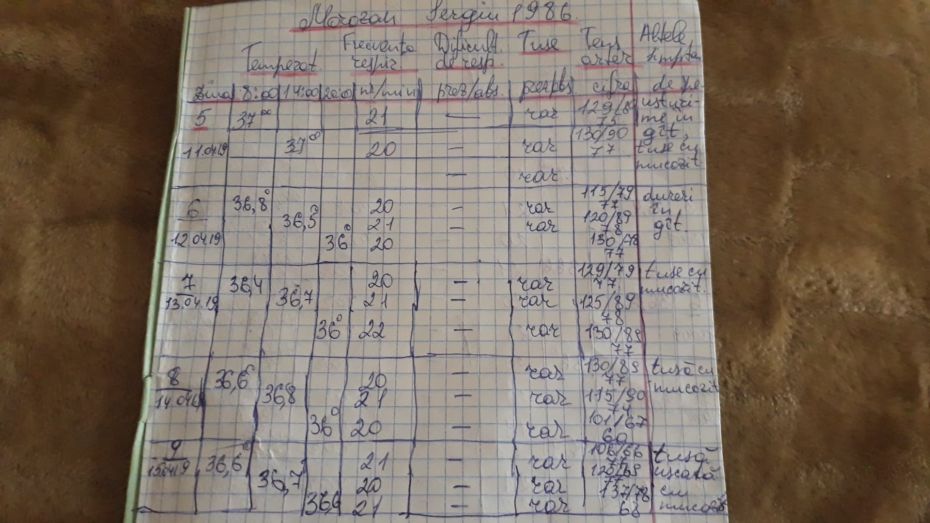 Morozan Sergiu 1986
Temperat. Frecvența respir. Dificult. de resp. Tuse Tens. arter. Altele simptom
Ziua 8:00 14:00 20:00 nr/min prez/abs prez/abs cifra
5 37°° 21 — rar 129/8 75 de je usturime in gît,
11.04.19 37°° 20 — rar 130/90 77 tuse cu mucozit
— rar
6 36,8° 20 — rar 115/79 77 dureri
36,5° 21 — rar 120/89 78 în
12.04.19 36° 20 130/78 77 gît.
7 36,4 20 — rar 129/79 77 tuse cu
13.04.19 36,7 21 — rar 125/89 78 mucozit.
36° 22 — rar 130/89 77
8 36,6° 20 — rar 130/89 77 tusă cu
14.04.19 36,8 21 — rar 115/90 mucozit
36° 20 — rar 101/67 60
9 36,6° 21 — rar 106/66 77 tusă
15.04.19 36,7 20 — rar 120/69 77 uscată
36,9 21 — rar 137/78 68 cu mucozit